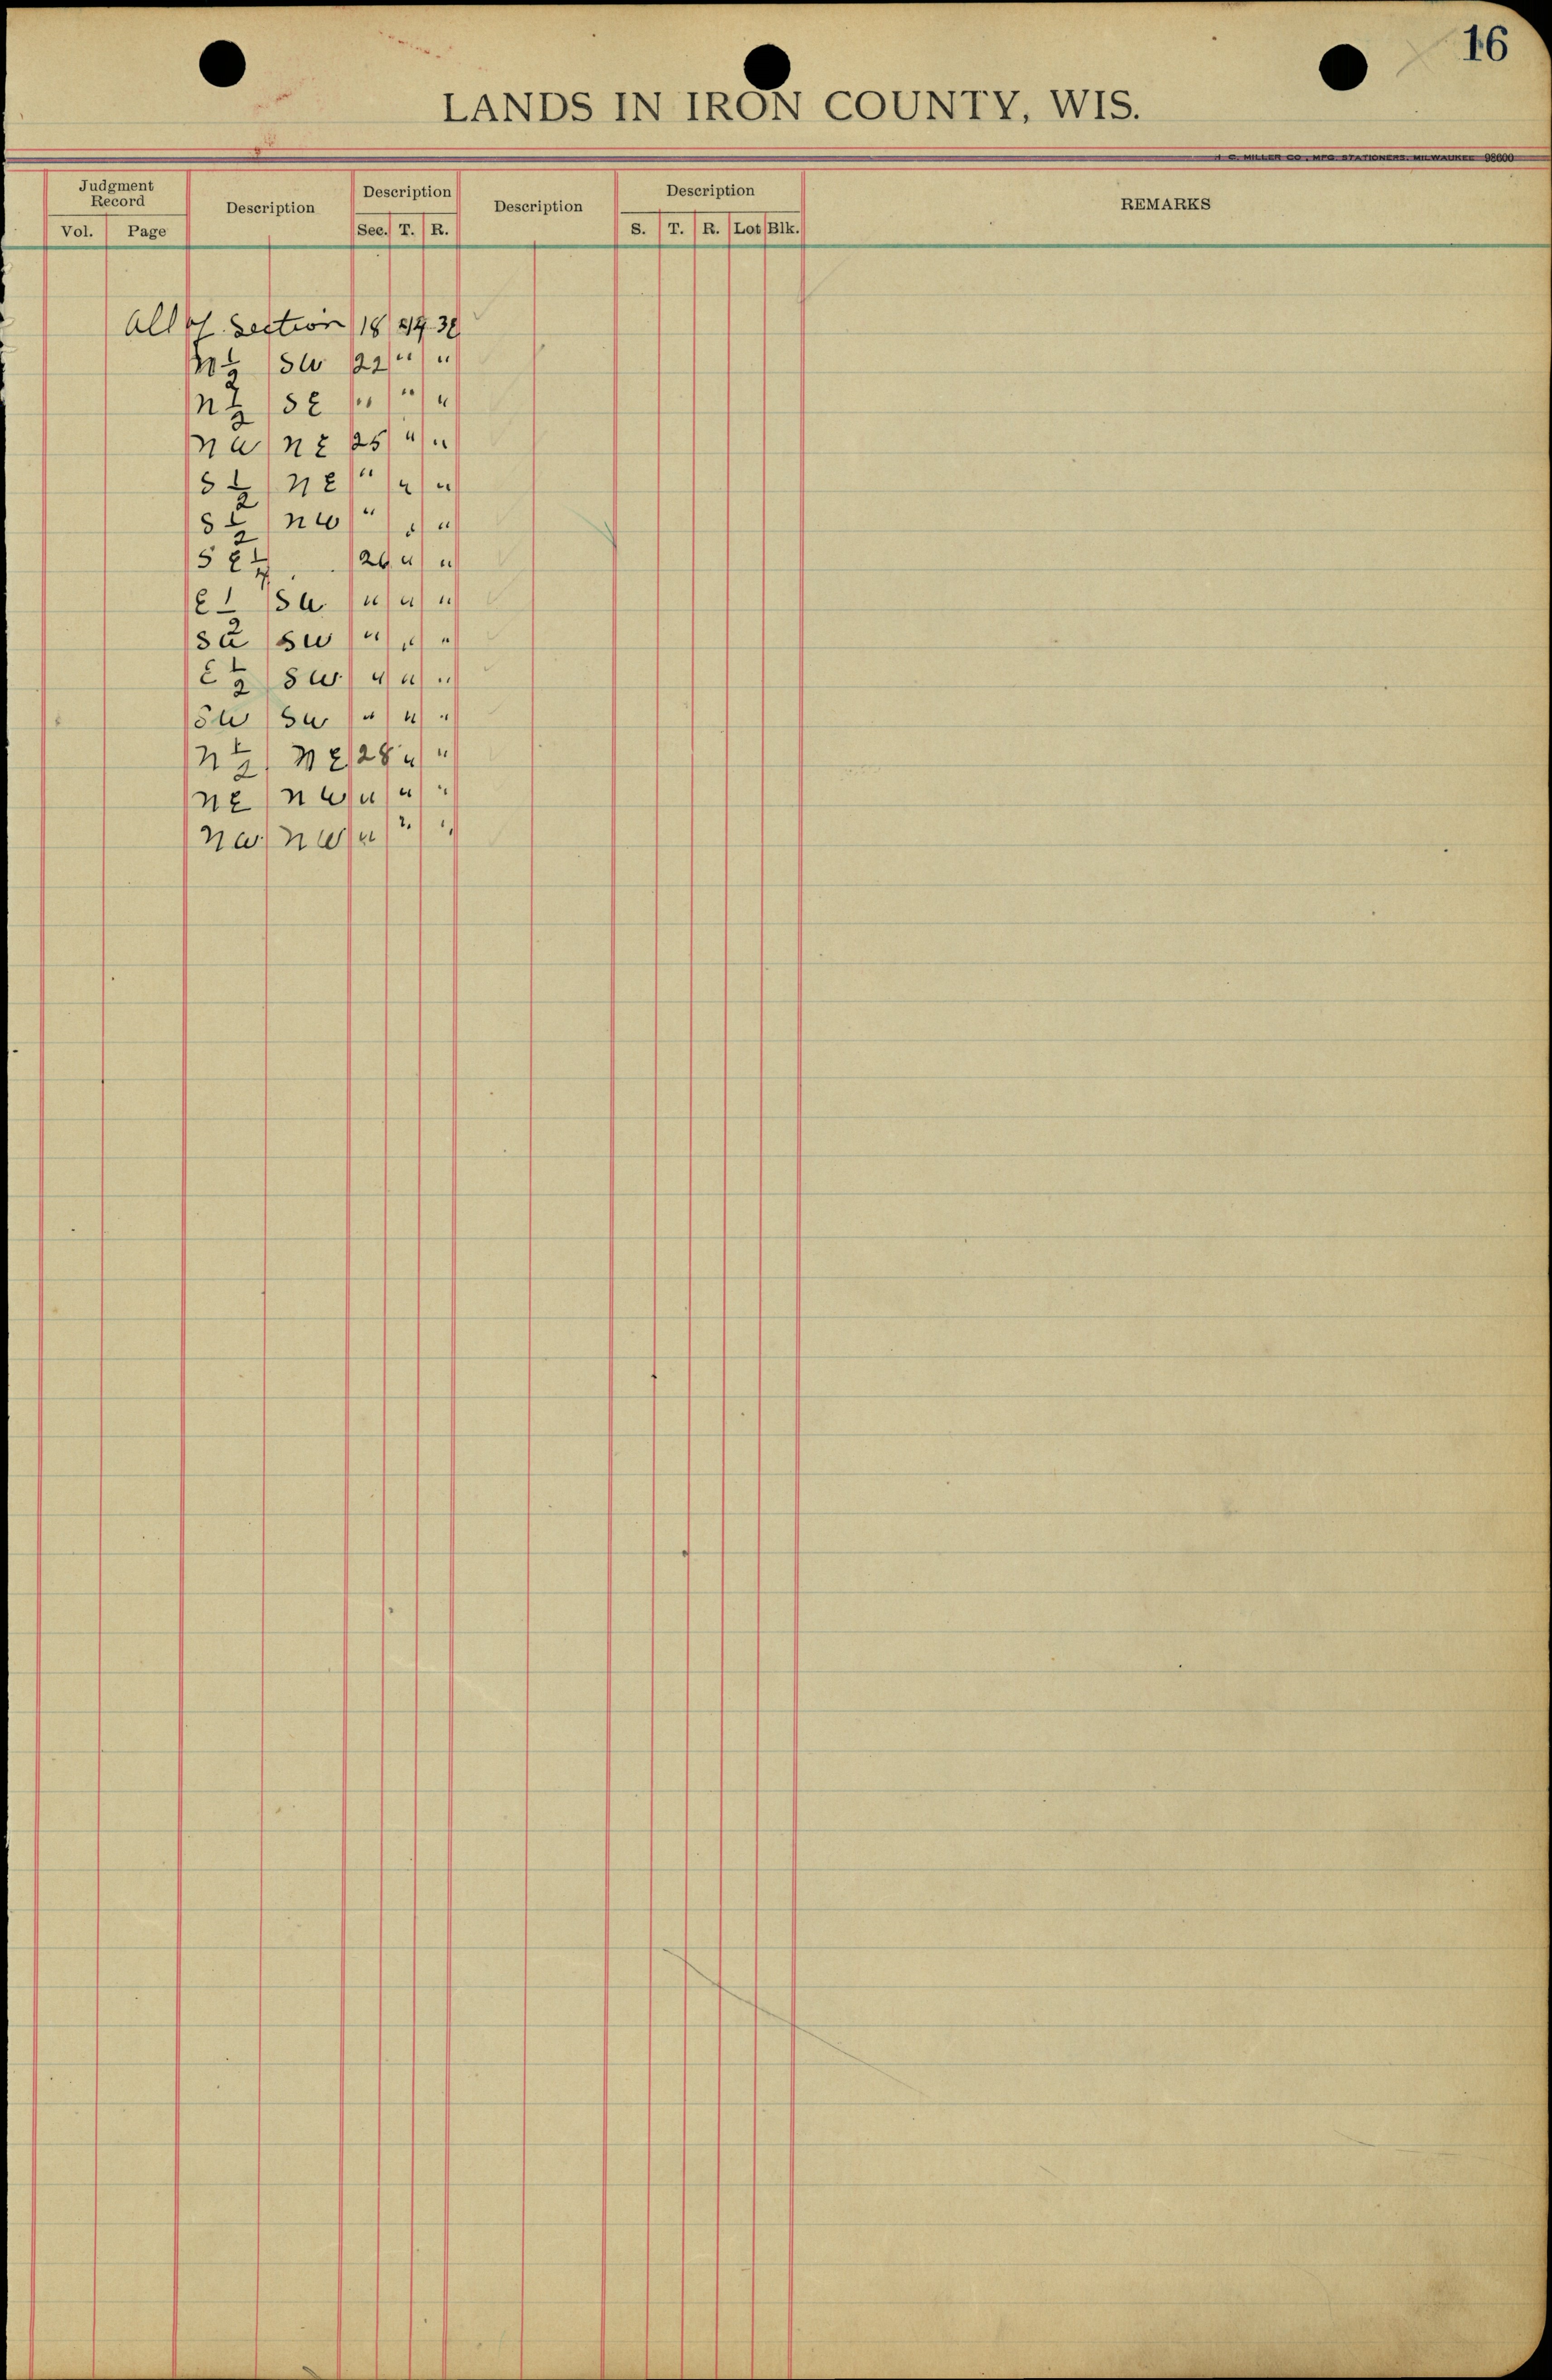 16
LANDS IN IRON COUNTY, WIS.
H. C. MILLER CO., MFG. STATIONERS, MILWAUKEE 98600
Judgment Record Description Description Description Description REMARKS
Vol. Page Sec. T. R. S. T. R. Lot Blk.
All of Section 18
N 1/2 SW 22 " "
N 1/2 SE " " "
NW NE 25 " "
S 1/2 NE " " "
S 1/2 NW " " "
SE 1/4 26 " "
E 1/2 SW " " "
SW SW " " "
E 1/2 SW " " "
SW SW " " "
N 1/2 NE 28 " "
NE NW " " "
NW NW " " "